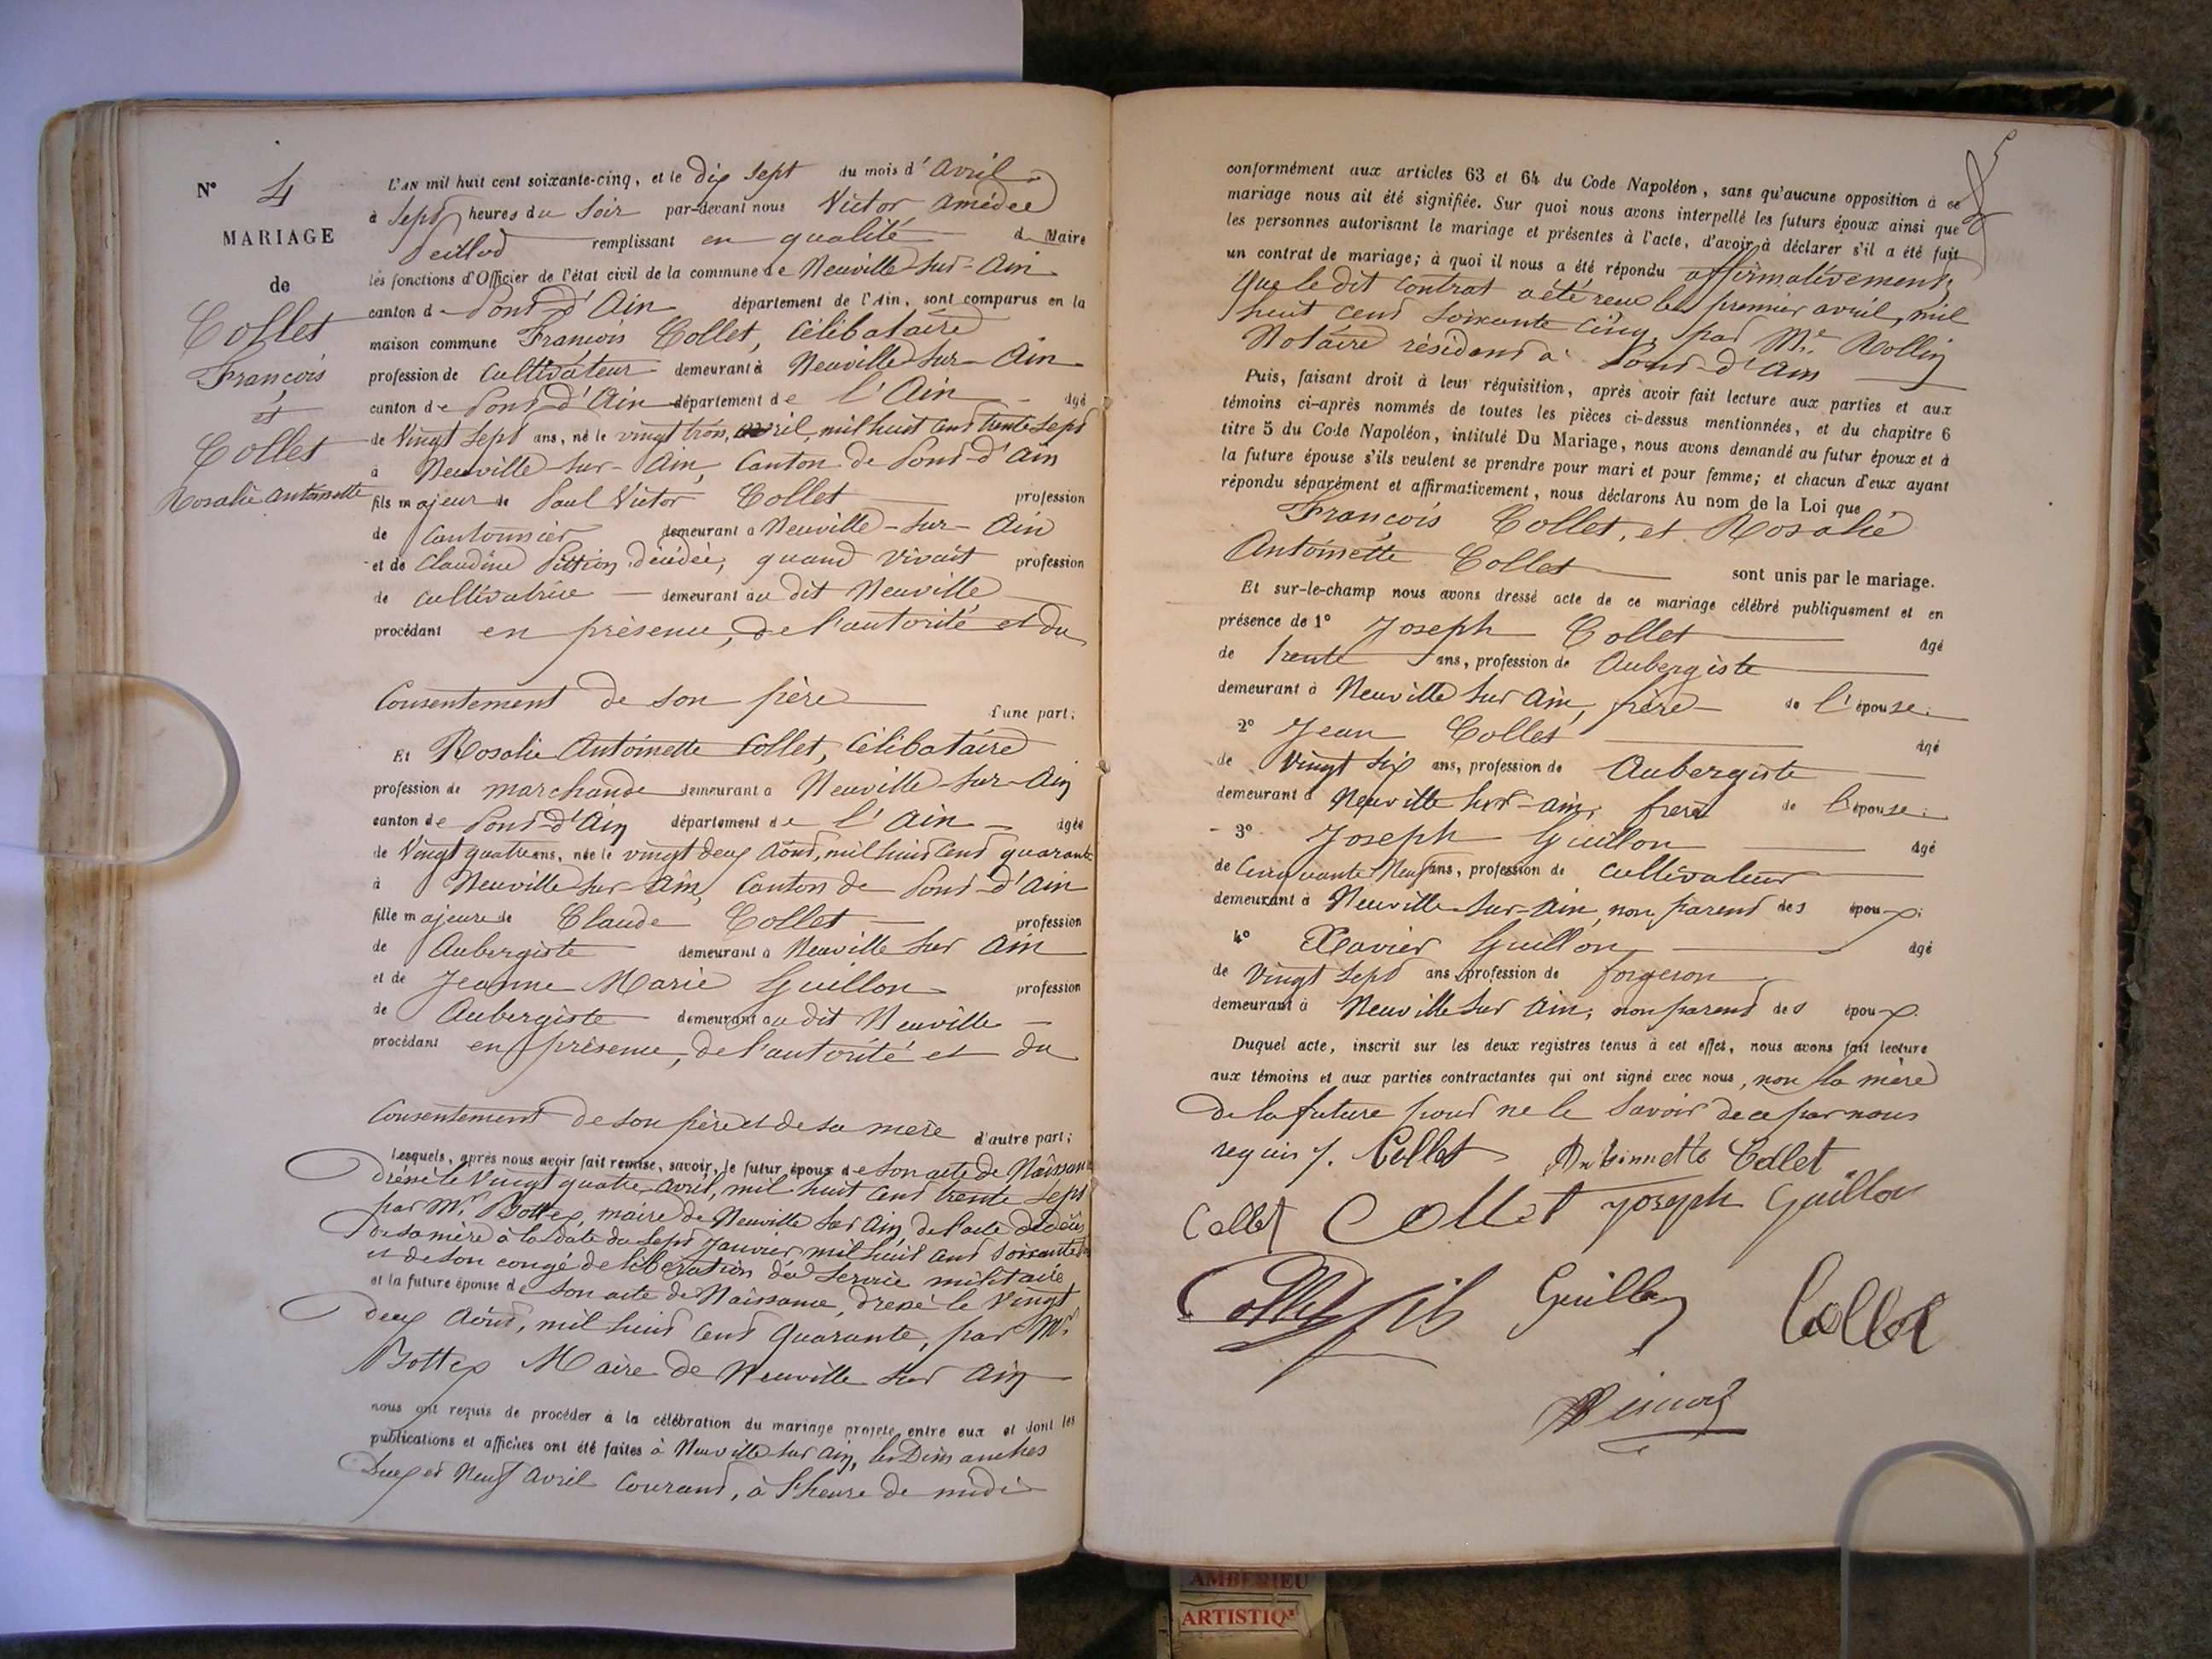 N° 4
MARIAGE
de
Collet
François
et
Collet
Rosalie Antoinette
L'AN mil huit cent soixante-cinq, et le dix sept du mois d'avril
à sept heures du soir par-devant nous Victor Amédée
remplissant en qualité de Maire
les fonctions d'Officier de l'état civil de la commune de Neuville-sur-Ain
canton de Pont-d'Ain département de l'Ain, sont comparus en la
maison commune François Collet, Célibataire
profession de Cultivateur demeurant à Neuville-sur-Ain
canton de Pont-d'Ain département de l'Ain âgé
de Vingt sept ans, né le vingt trois, avril, mil huit cent trente sept
à Neuville-sur-Ain, Canton de Pont-d'Ain
fils majeur de Paul Victor Collet profession
de Cantonnier demeurant à Neuville-sur-Ain
et de Claudine décédée, quand vivait profession
de cultivatrice demeurant au dit Neuville
procédant en présence, de l'autorité et du
Consentement de son père
d'une part;
Et Rosalie Antoinette Collet, Célibataire
profession de marchande demeurant à Neuville-sur-Ain
canton de Pont-d'Ain département de l'Ain âgée
de Vingt quatre ans, née le vingt deux Août, mil huit cent quarante
à Neuville-sur-Ain, Canton de Pont-d'Ain
fille majeure de Claude Collet profession
de Aubergiste demeurant à Neuville sur Ain
et de Jeanne Marie Guillon profession
de Aubergiste demeurant au dit Neuville
procédant en présence, de l'autorité et du
Consentement de son père et de sa mère d'autre part;
Lesquels, après nous avoir fait remise, savoir, le futur époux de son acte de Naissance
dréssé le Vingt quatre avril, mil huit cent trente sept
par Mr. Bottex, maire de Neuville sur Ain, de l'acte décès
de sa mère à la date du sept Janvier mil huit cent soixante
et de son congé de libération du service militaire
et la future épouse de son acte de Naissance, dréssé le Vingt
deux Août, mil huit cent quarante, par Mr.
Bottex Maire de Neuville sur Ain
nous ont requis de procéder à la célébration du mariage projeté entre eux et dont les
publications et affiches ont été faites à Neuville sur Ain, les Dimanches
Deux et Neuf Avril Courant, à l'heure de midi
conformément aux articles 63 et 64 du Code Napoléon, sans qu'aucune opposition à ce
mariage nous ait été signifiée. Sur quoi nous avons interpellé les futurs époux ainsi que
les personnes autorisant le mariage et présentes à l'acte, d'avoir à déclarer s'il a été fait
un contrat de mariage; à quoi il nous a été répondu affirmativement,
que le dit Contrat a été reçu le premier avril, mil
huit cent soixante cinq, par Me. Rollin
Notaire résidant à Pont-d'Ain
Puis, faisant droit à leur réquisition, après avoir fait lecture aux parties et aux
témoins ci-après nommés de toutes les pièces ci-dessus mentionnées, et du chapitre 6
titre 5 du Code Napoléon, intitulé Du Mariage, nous avons demandé au futur époux et à
la future épouse s'ils veulent se prendre pour mari et pour femme; et chacun d'eux ayant
répondu séparément et affirmativement, nous déclarons Au nom de la Loi que
François Collet, et Rosalie
Antoinette Collet sont unis par le mariage.
Et sur-le-champ nous avons dressé acte de ce mariage célébré publiquement et en
présence de 1° Joseph Collet âgé
de trente ans, profession de Aubergiste
demeurant à Neuville sur Ain, frère de l'épouse.
2° Jean Collet âgé
de Vingt six ans, profession de Aubergiste
demeurant à Neuville sur-Ain, frère de l'épouse.
3° Joseph Guillon âgé
de Cinquante Neuf ans, profession de cultivateur
demeurant à Neuville-sur-Ain, non parent des époux;
4° Xavier Guillon âgé
de Vingt sept ans, profession de forgeron
demeurant à Neuville sur Ain, non parent des époux.
Duquel acte, inscrit sur les deux registres tenus à cet effet, nous avons fait lecture
aux témoins et aux parties contractantes qui ont signé avec nous, non la mère
de la future pour ne le savoir de ce par nous
requis. Collet Antoinnette Collet
Collet Collet Joseph Guillon
Collet fils Guillon Collet
AMBERIEU
ARTISTIQ